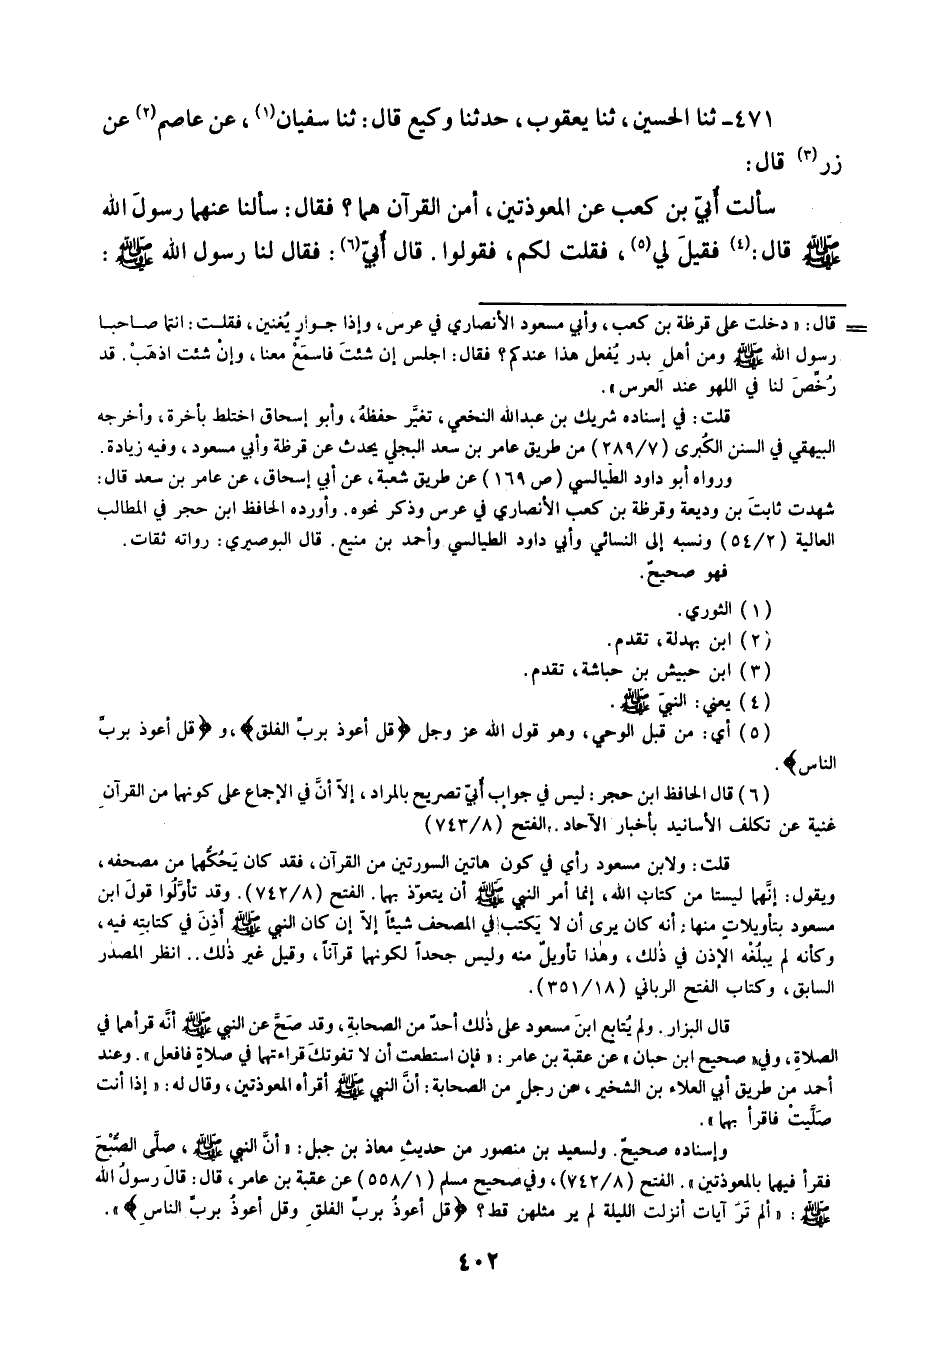 ٤٧١ـ ثنا الحسين، ثنا يعقوب، حدثنا وكيع قال: ثنا سفيان(١)، عن عاصم(٢) عن
زر(٣) قال:
سألت أُبيّ بن كعب عن المعوذتين، أمن القرآن هما؟ فقال: سألنا عنهما رسولَ الله
ﷺ قال:(٤) فقيلَ لي(٥)، فقلت لكم، فقولوا. قال أُبيّ(٦): فقال لنا رسول الله ﷺ:
= قال: «دخلت على قرظة بن كعب، وأبي مسعود الأنصاري في عرس، وإذا جـوارٍ يُغنين، فقلـت: انتما صـاحبـا
رسول الله ﷺ ومن أهلِ بدر يُفعل هذا عندكم؟ فقال: اجلس إن شئتَ فاسمَعْ معنا، وإنْ شئت اذهَبْ. قد
رُخِّصَ لنا في اللهو عند العرس».
قلت: في إسناده شريك بن عبدالله النخعي، تغيَّر حفظهُ، وأبو إسحاق اختلط بأخرة، وأخرجه
البيهقي في السنن الكُبرى (٢٨٩/٧) من طريق عامر بن سعد البجلي يحدث عن قرظة وأبي مسعود، وفيه زيادة.
ورواه أبو داود الطَيالسي (ص ١٦٩) عن طريق شعبة، عن أبي إسحاق، عن عامر بن سعد قال:
شهدت ثابتَ بن وديعة وقرظة بن كعب الأنصاري في عرس وذكر نحوه. وأورده الحافظ ابن حجر في المطالب
العالية (٥٤/٢) ونسبه إلى النسائي وأبي داود الطيالسي وأحمد بن منيع. قال البوصيري: رواته ثقات.
فهو صحيحٌ.
(١) الثوري.
(٢) ابن بهدلة، تقدم.
(٣) ابن حبيش بن حباشة، تقدم.
(٤) يعني: النبيّ ﷺ.
(٥) أي: من قبل الوحي، وهو قول الله عز وجل ﴿قل أعوذ بربِّ الفلق﴾، و﴿قل أعوذ بربِّ
الناس﴾.
(٦) قال الحافظ ابن حجر: ليس في جواب أُبيّ تصريح بالمراد، إلاّ أنَّ في الإجماع على كونهما من القرآنِ
غنية عن تكلف الأسانيد بأخبار الآحاد.. الفتح (٧٤٣/٨)
قلت: ولابن مسعود رأي في كون هاتين السورتين من القرآن، فقد كان يَحُكُّهما من مصحفه،
ويقول: إنَّهما ليستا من كتاب الله، إنما أمر النبي ﷺ أن يتعوّذ بهما. الفتح (٧٤٢/٨). وقد تأوَّلوا قولَ ابن
مسعود بتأويلاتٍ منها: أنه كان يرى أن لا يَكتب في المصحف شيئاً إلاّ إن كان النبي ﷺ أَذِنَ في كتابتِه فيه،
وكأنه لم يبلُغْه الإذن في ذلك، وهٰذا تأويلٌ منه وليس جحداً لكونهما قرآناً، وقيل غير ذٰلك.. انظر المصدَر
السابق، وكتاب الفتح الرباني (٣٥١/١٨).
قال البزار. ولم يُتابع ابنَ مسعود على ذٰلك أحدٌ من الصحابةِ، وقد صَحَّ عن النبي ﷺ أنَّه قرأهما في
الصلاةِ، وفي «صحيح ابن حبان» عن عقبة بن عامر: «فإن استطعت أن لا تفوتكَ قراءتهما في صلاةٍ فافعل». وعند
أحمد من طريق أبي العلاء بن الشخير، عن رجلٍ من الصحابة: أنَّ النبي ﷺ أقرأه المعوذتين، وقال له: «إذا أنت
صَلَّيتْ فاقرأ بهما».
وإسناده صحيحٌ. ولسعيد بن منصور من حديثِ معاذ بن جبل: «أنَّ النبي ﷺ، صلَّى الصُّبْحَ
فقرأ فيهما بالمعوذتين». الفتح (٧٤٢/٨)، وفي صحيح مسلم (٥٥٨/١) عن عقبة بن عامر، قال: قالَ رسولُ الله
ﷺ: «ألم ترَ آيات أنزلت الليلة لم ير مثلهن قط؟ ﴿قل أعوذُ بربِّ الفلقِ وقل أعوذُ بربِّ الناسِ﴾».
٤٠٢